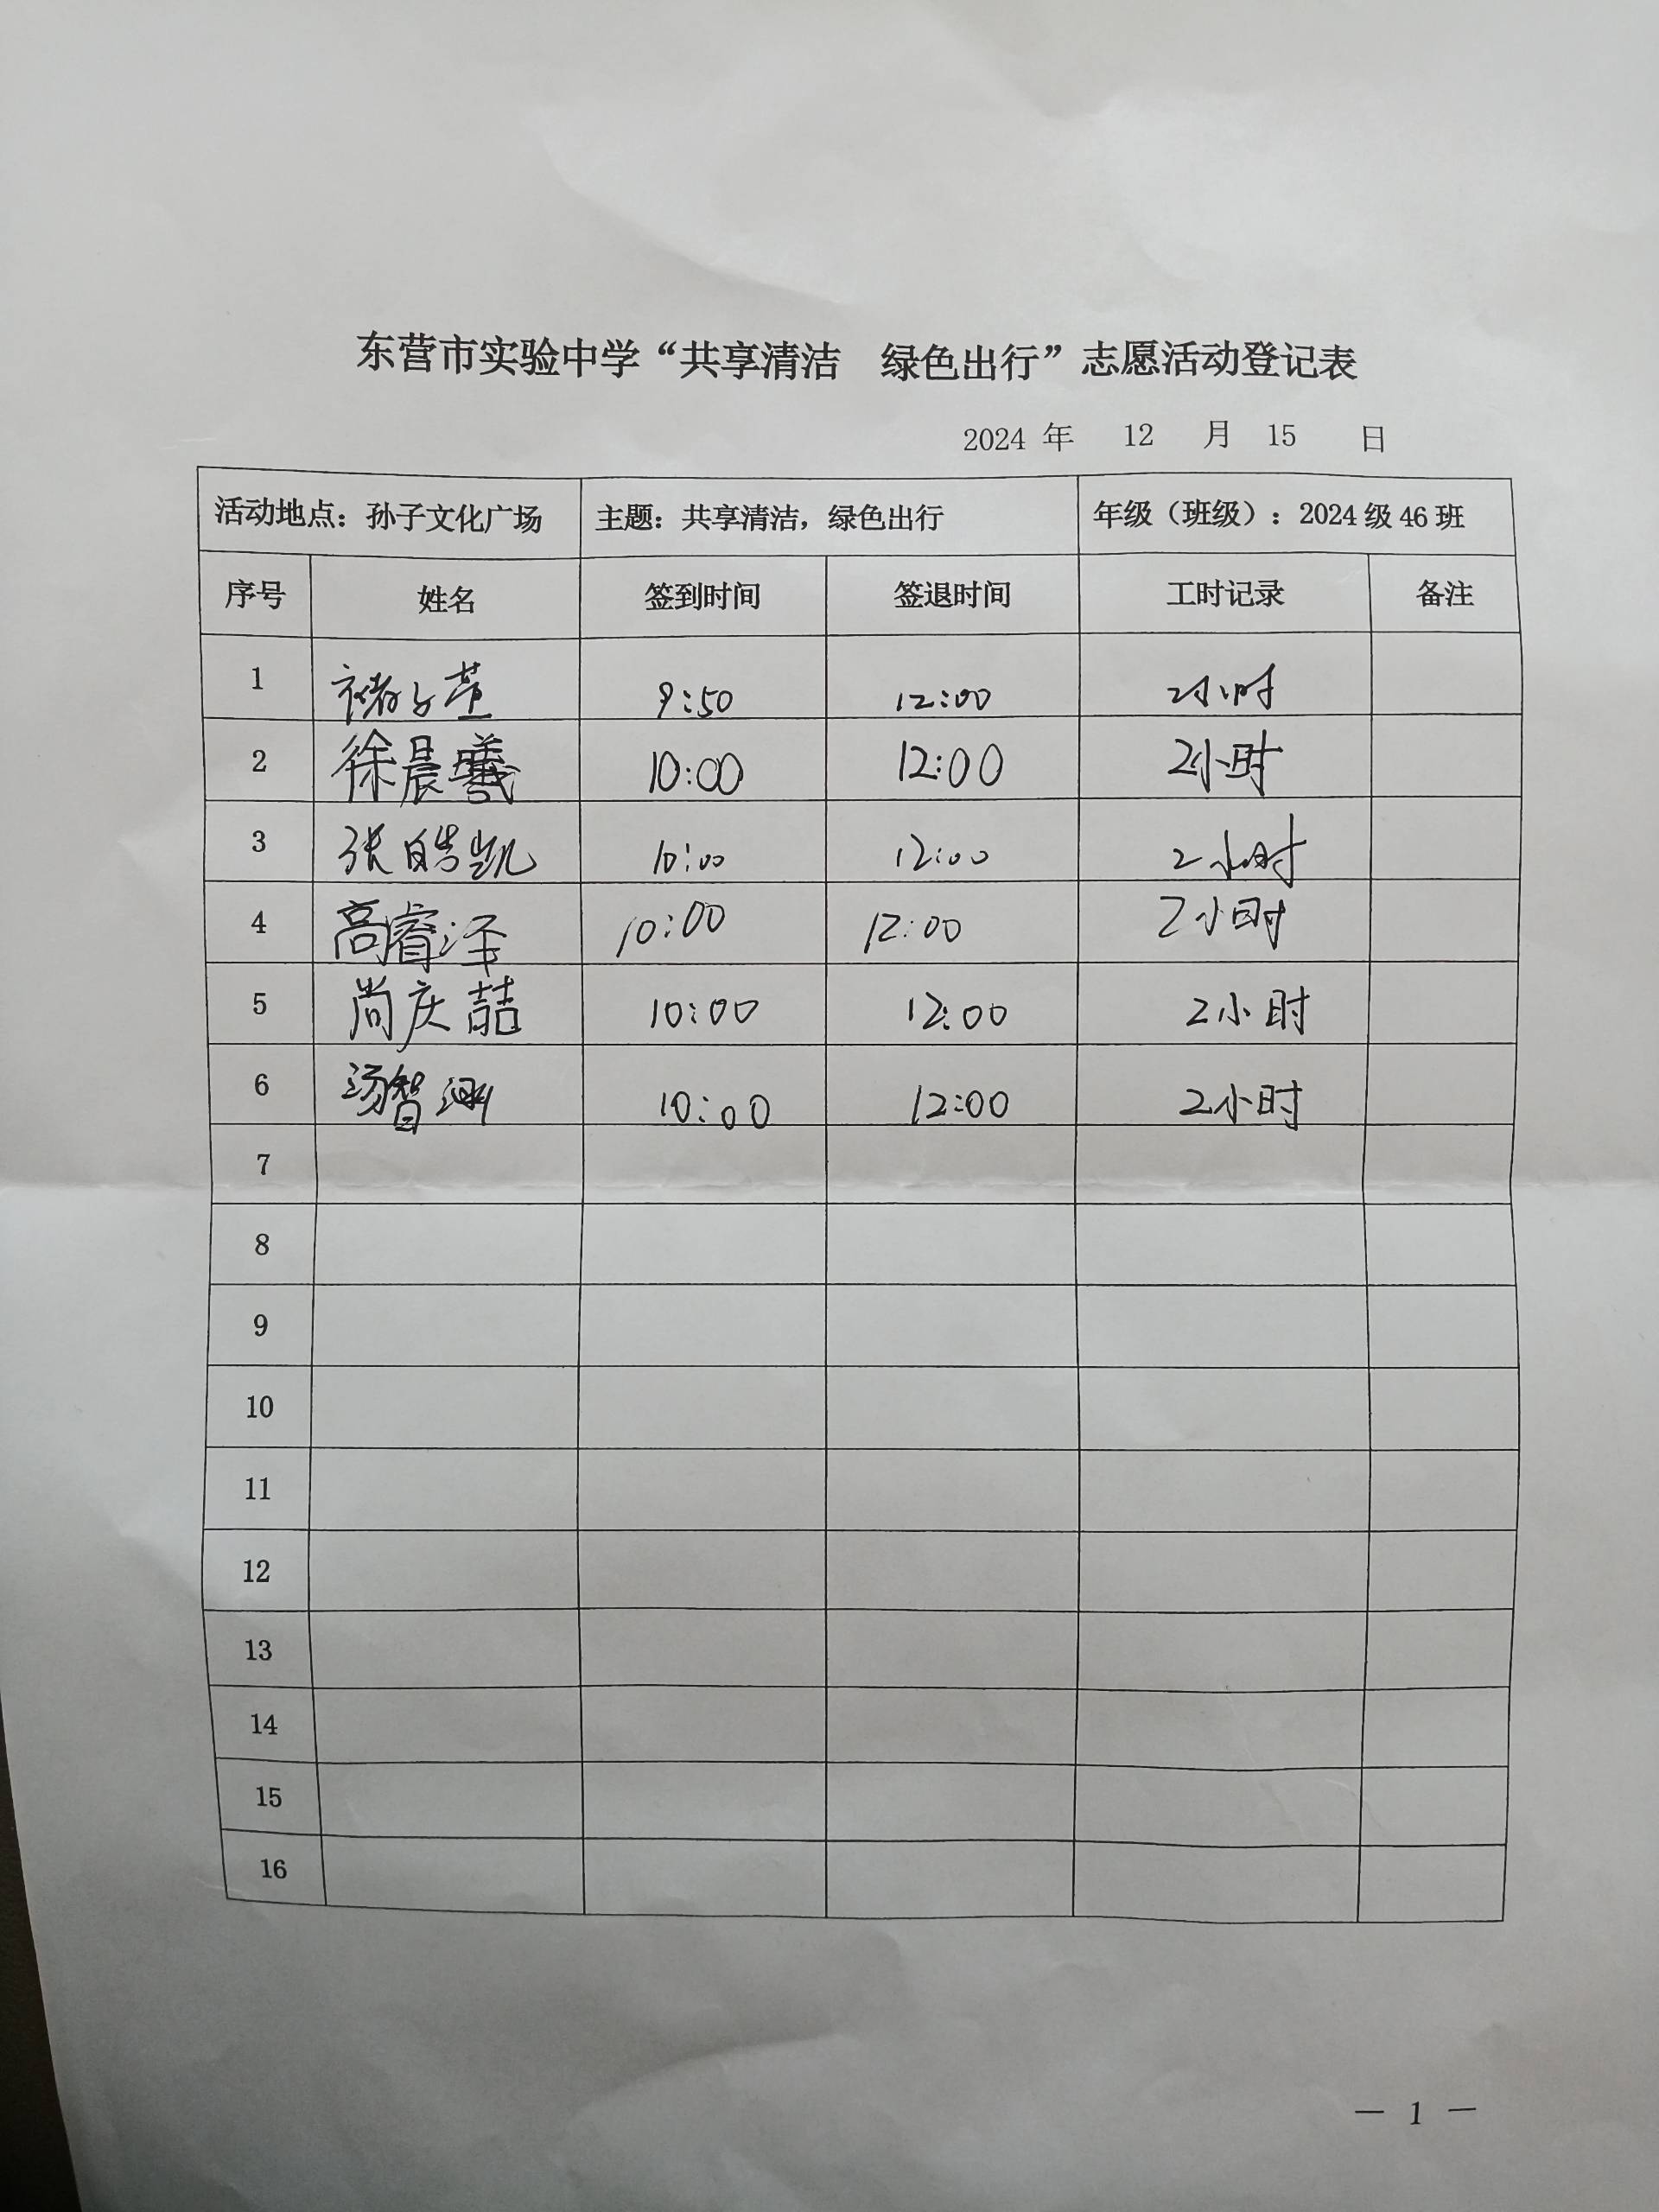 东营市实验中学“共享清洁 绿色出行”志愿活动登记表
2024 年 12 月 15 日
活动地点：孙子文化广场 主题：共享清洁，绿色出行 年级（班级）：2024 级 46 班
序号 姓名 签到时间 签退时间 工时记录 备注
1 褚子萱 9:50 12:00 2小时
2 徐晨曦 10:00 12:00 2小时
3 张皓凯 10:00 12:00 2小时
4 高睿泽 10:00 12:00 2小时
5 尚庆喆 10:00 12:00 2小时
6 汤智渊 10:00 12:00 2小时
7
8
9
10
11
12
13
14
15
16
— 1 —